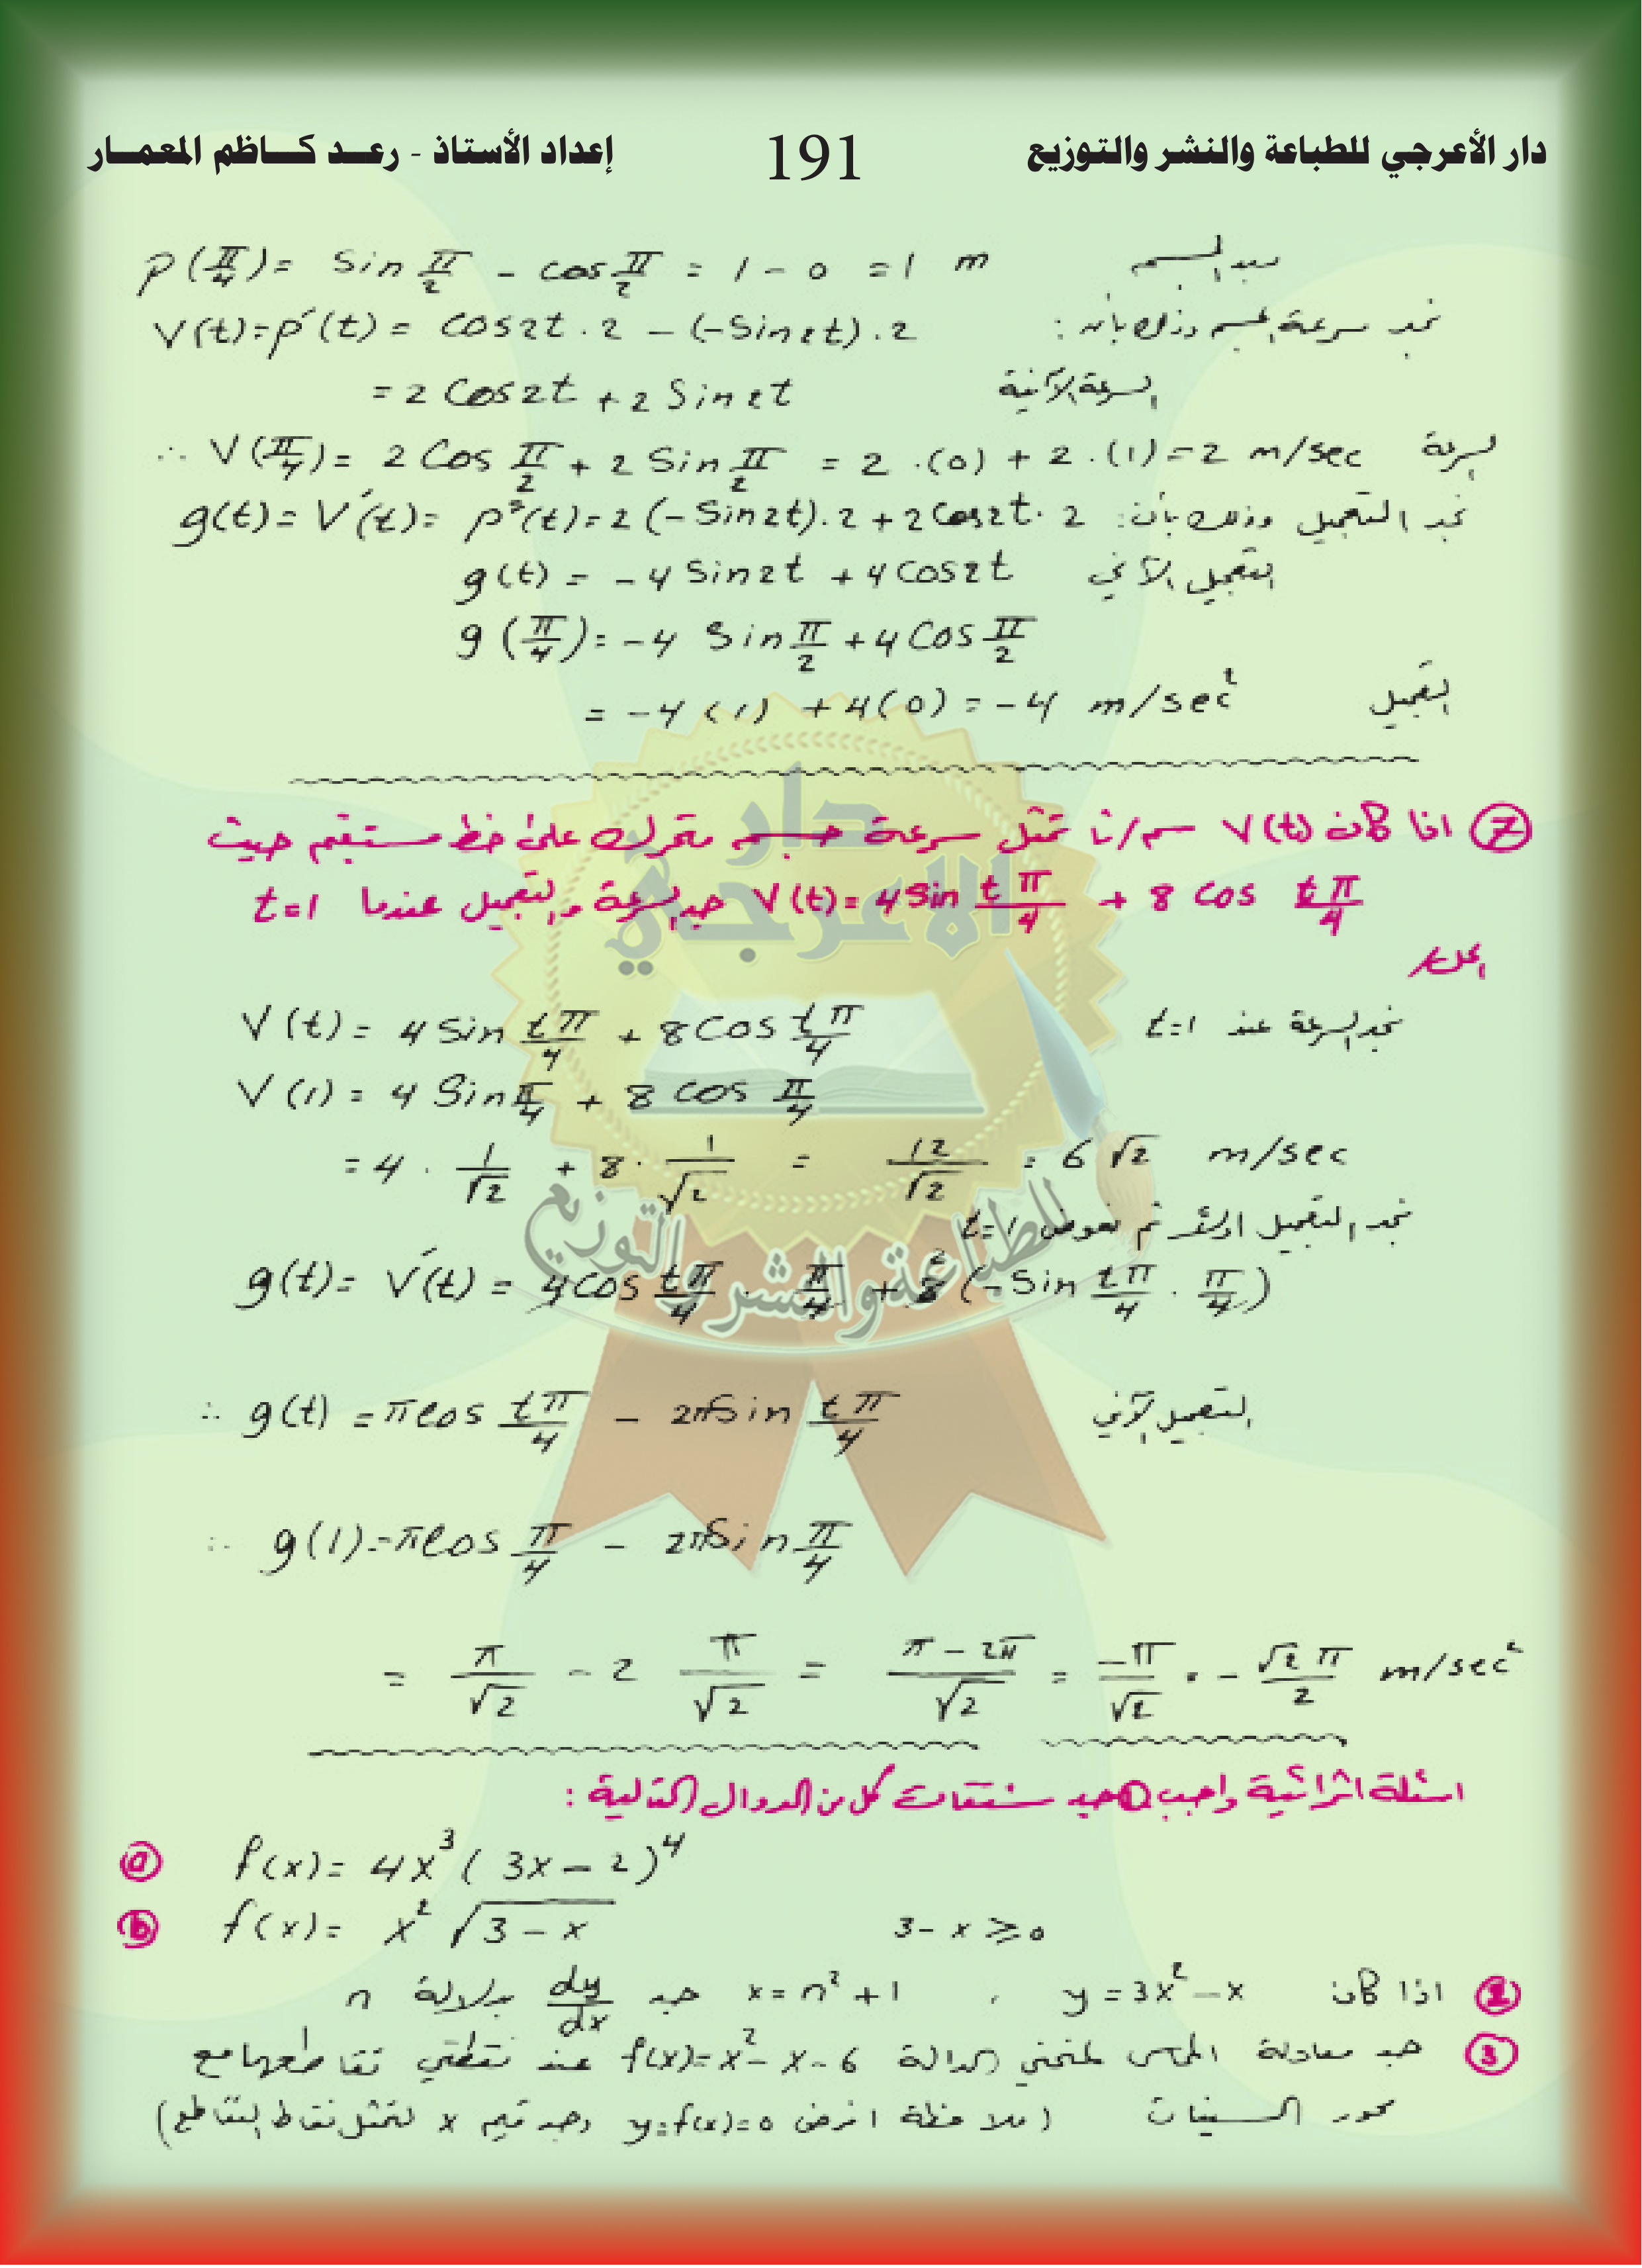 دار الأعرجي للطباعة والنشر والتوزيع 191 إعداد الأستاذ - رعد كاظم المعمار
p(π/4) = sin π/2 - cos π/2 = 1 - 0 = 1 m بعد الجسم
نجد سرعة الجسم وذلك بأن: V(t) = p′(t) = cos2t . 2 - (-sin2t) . 2
= 2 cos2t + 2 sin2t السرعة الآنية
∴ V(π/4) = 2 cos π/2 + 2 sin π/2 = 2 . (0) + 2 . (1) = 2 m/sec السرعة
نجد التعجيل وذلك بأن: g(t) = V′(t) = p²(t) = 2(-sin2t).2 + 2cos2t . 2
g(t) = -4 sin2t + 4 cos2t التعجيل الآني
g(π/4) = -4 sin π/2 + 4 cos π/2
= -4(1) + 4(0) = -4 m/sec² التعجيل
⑦ اذا كان V(t) سم/ثا تمثل سرعة جسم متحرك على خط مستقيم حيث
V(t) = 4 sin tπ/4 + 8 cos tπ/4 جد السرعة والتعجيل عندما t=1
الحل
نجد السرعة عند t=1 V(t) = 4 sin tπ/4 + 8 cos tπ/4
V(1) = 4 sin π/4 + 8 cos π/4
= 4 . 1/√2 + 8 . 1/√2 = 12/√2 = 6√2 m/sec
نجد التعجيل اولاً ثم نعوض t=1
g(t) = V′(t) = 4cos tπ/4 . π/4 + 8²(-sin tπ/4 . π/4)
∴ g(t) = π cos tπ/4 - 2π sin tπ/4 التعجيل الآني
∴ g(1) = π cos π/4 - 2π sin π/4
= π/√2 - 2 π/√2 = π - 2π/√2 = -π/√2 = - √2 π/2 m/sec²
اسئلة اثرائية واجب ① جد مشتقات كل من الدوال التالية :
ⓐ f(x) = 4x³(3x - 2)⁴
ⓑ f(x) = x² √3 - x 3 - x ≥ 0
② اذا كان y = 3x² - x ، x = n² + 1 جد dy/dx بدلالة n
③ جد معادلة المماس لمنحني الدالة f(x) = x² - x - 6 عند نقطتي تقاطعها مع
محور السينات (ملاحظة افرض y = f(x) = 0 وجد قيم x لتمثل نقاط التقاطع)
دار
الاعرجي
للطباعة والنشر والتوزيع